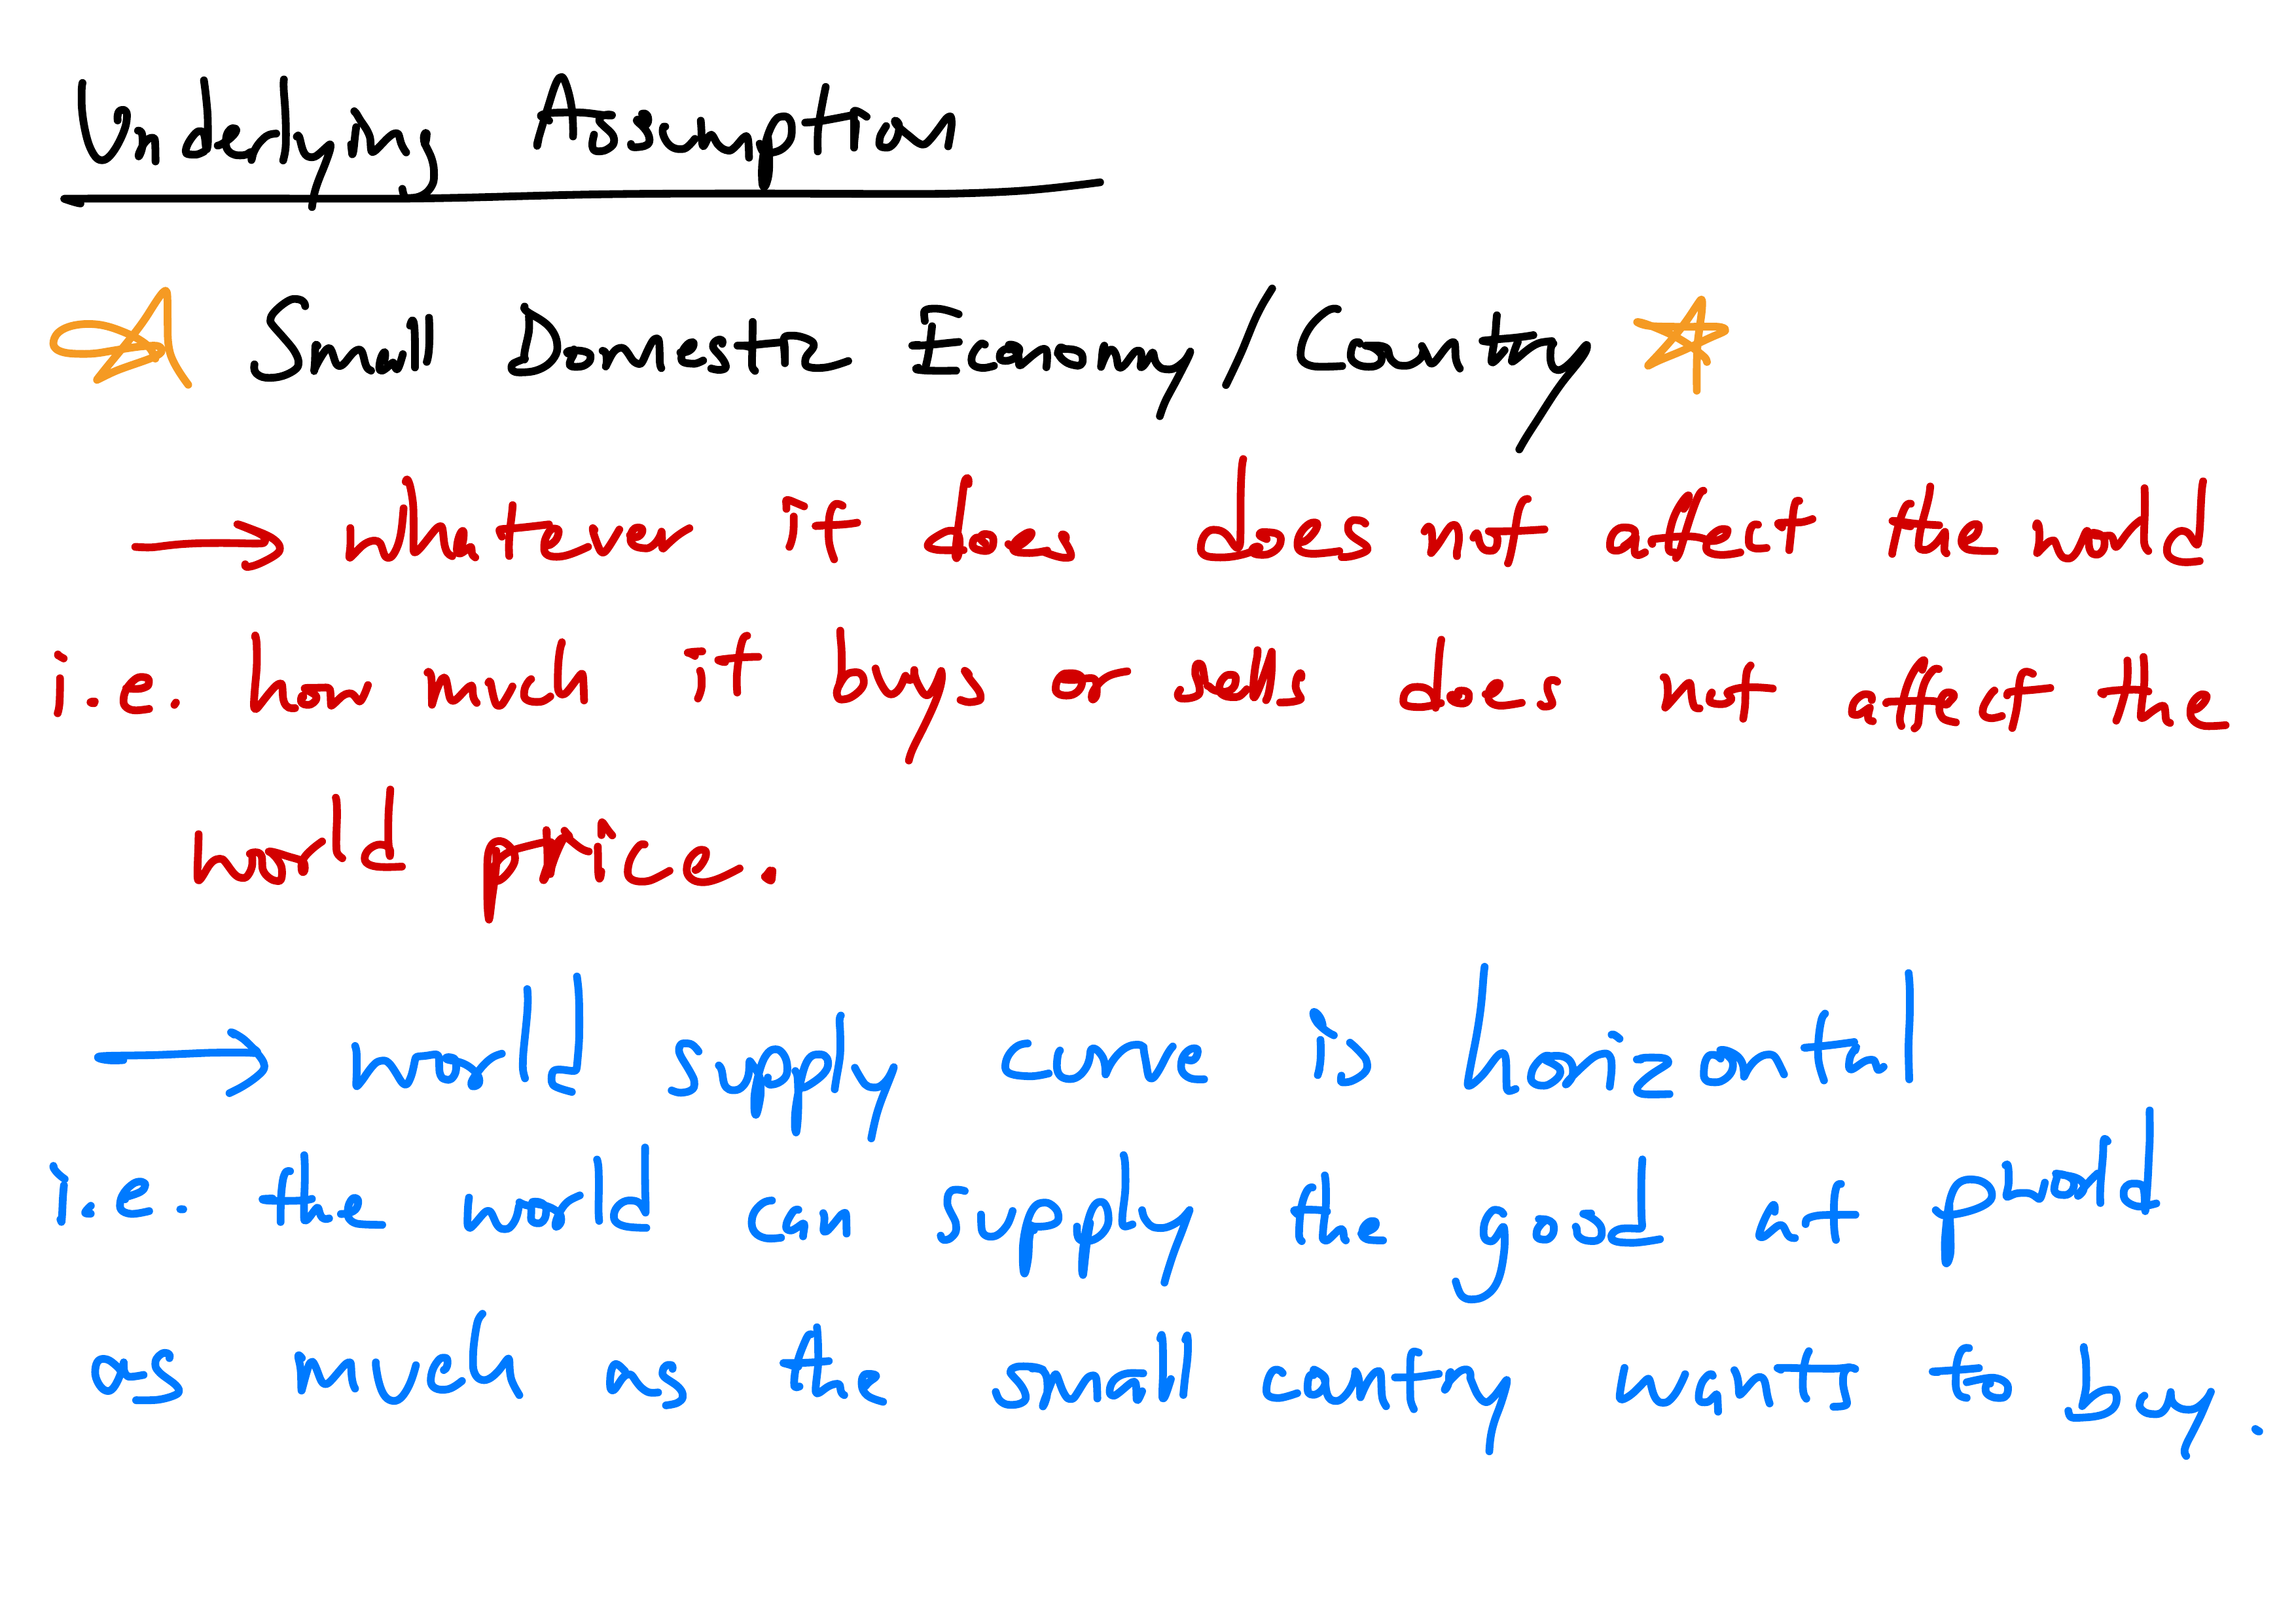 Underlying Assumption
Small Domestic Economy/Country
→ whatever it does does not affect the world
i.e. how much it buys or sells does not affect the
world price.
→ world supply curve is horizontal
i.e. the world can supply the good at pworld
as much as the small country wants to buy.